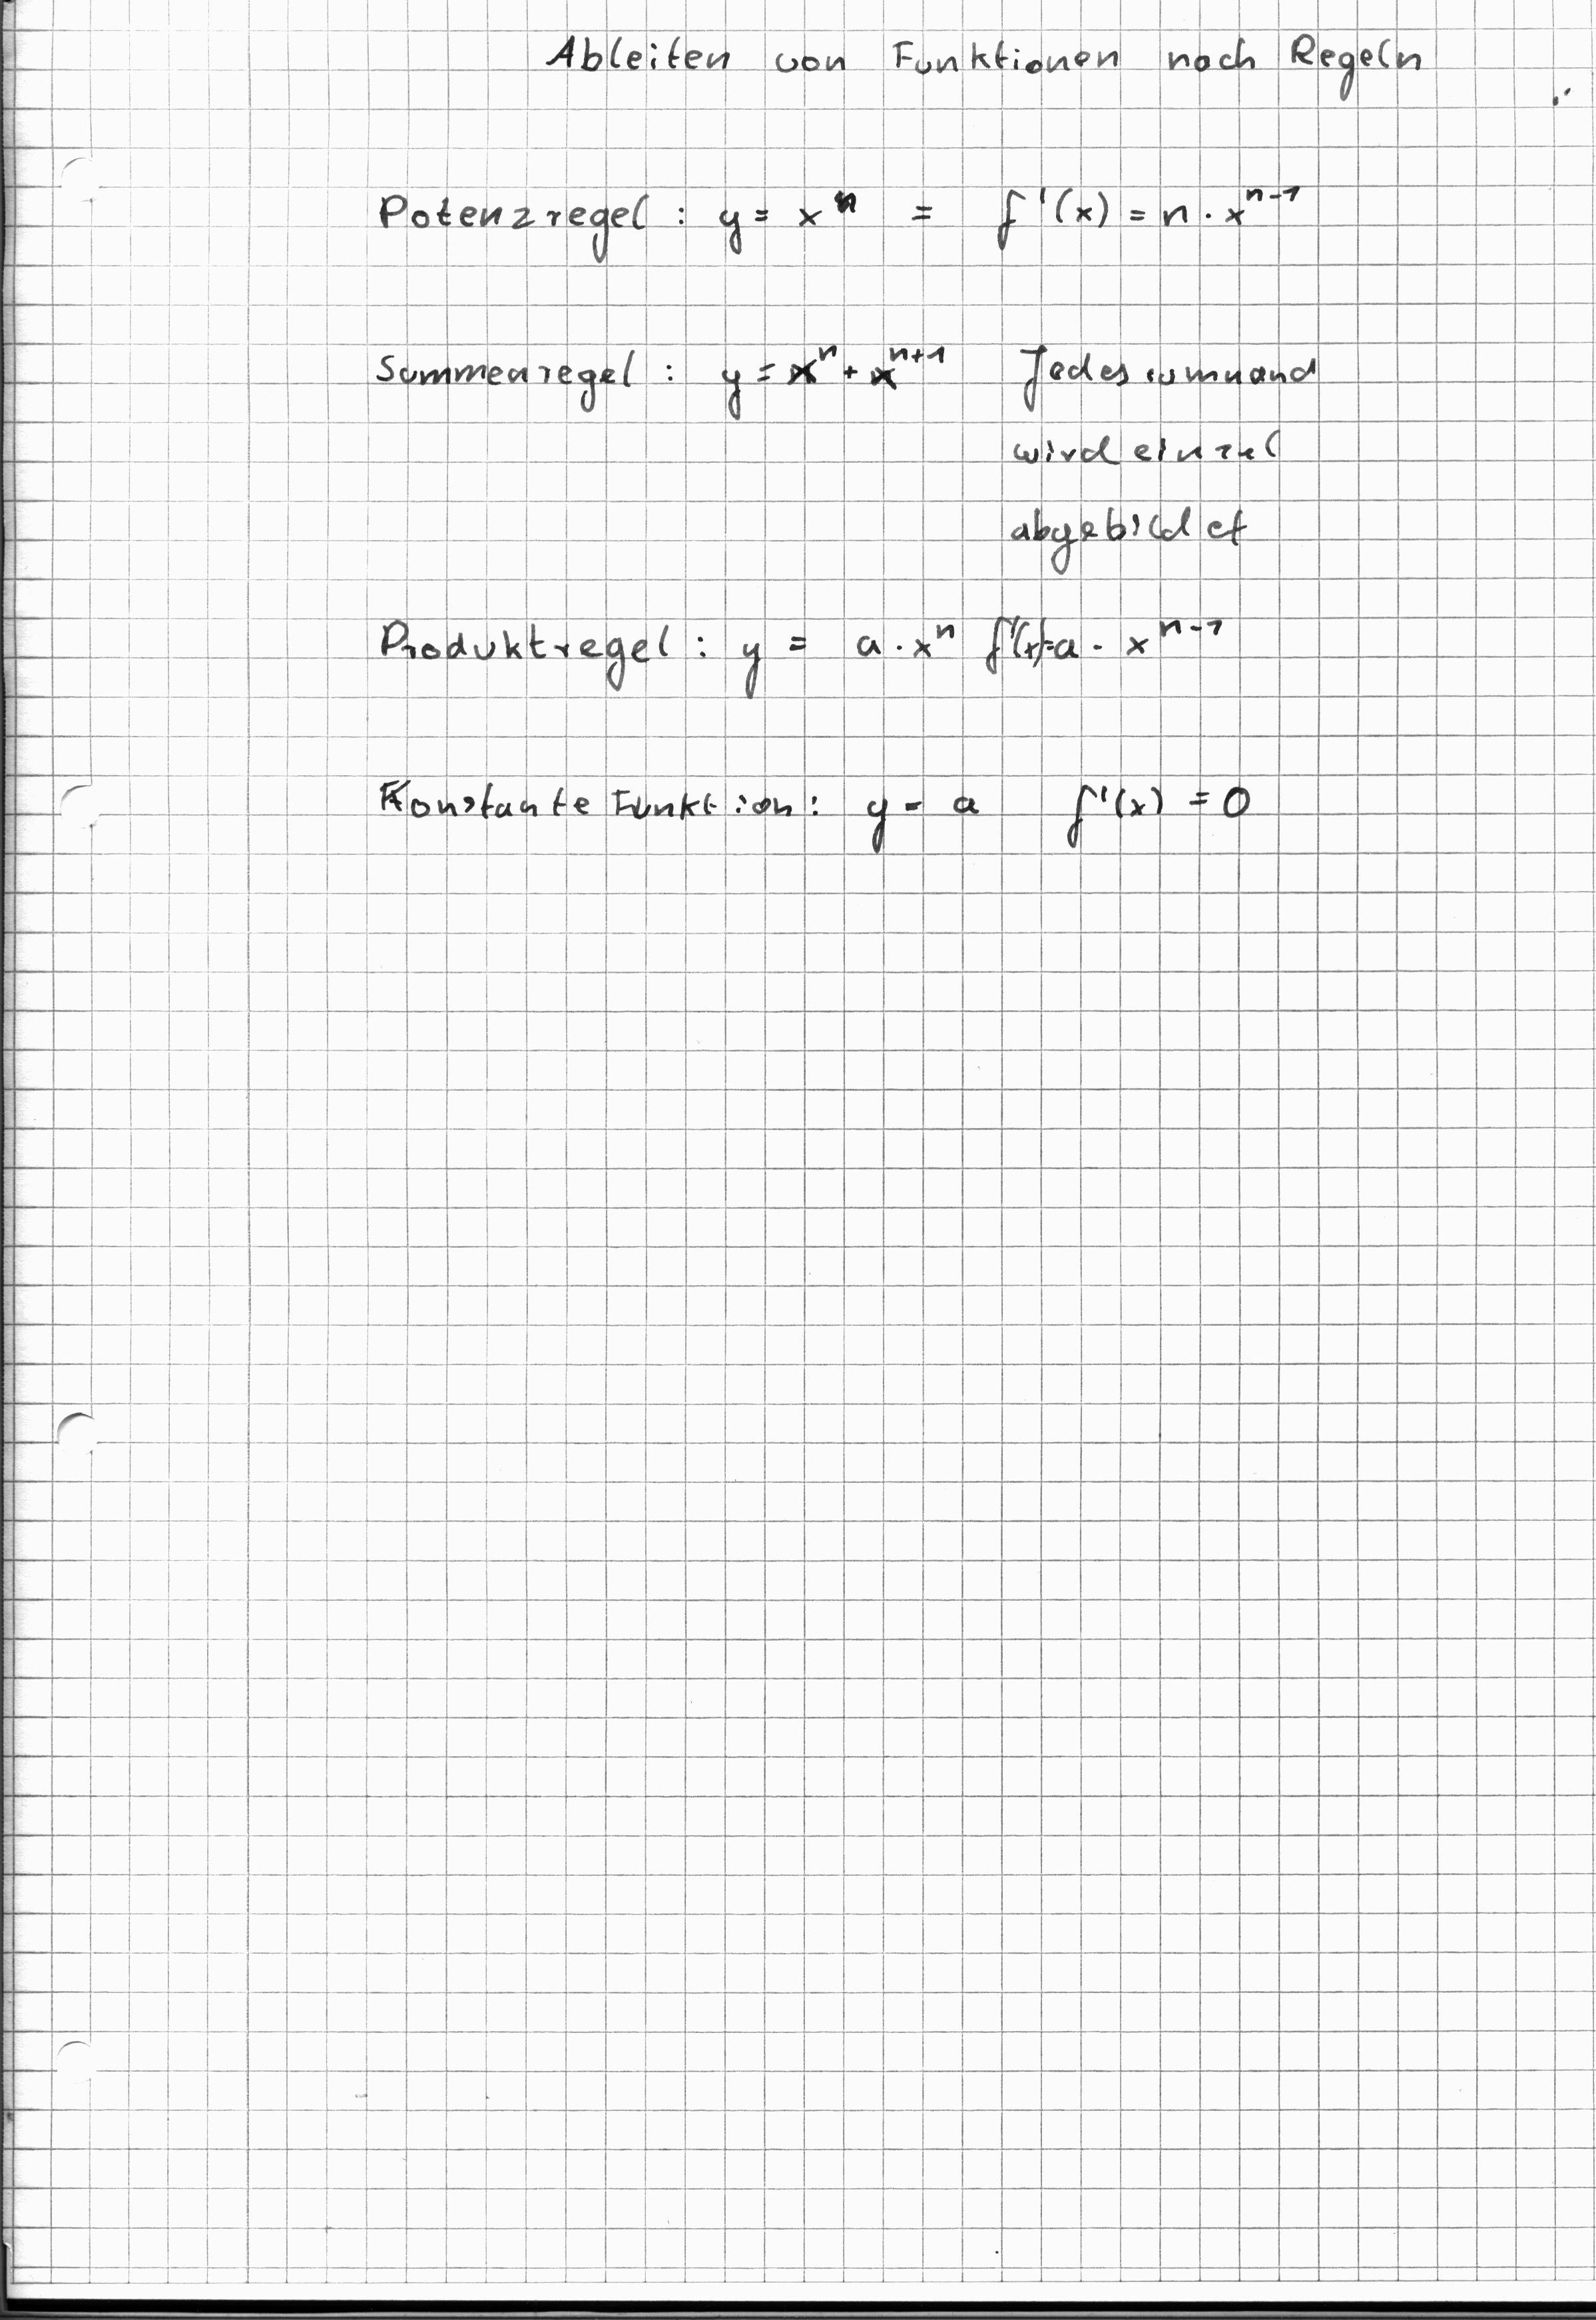 Ableiten von Funktionen nach Regeln
Potenzregel : y = xⁿ = f'(x) = n · xⁿ⁻¹
Summenregel : y = xⁿ + xⁿ⁺¹ Jedes sumnand
wird einzel
abgebildet
Produktregel : y = a · xⁿ f'(x)=a · xⁿ⁻¹
Konstante Funktion : y = a f'(x) = 0